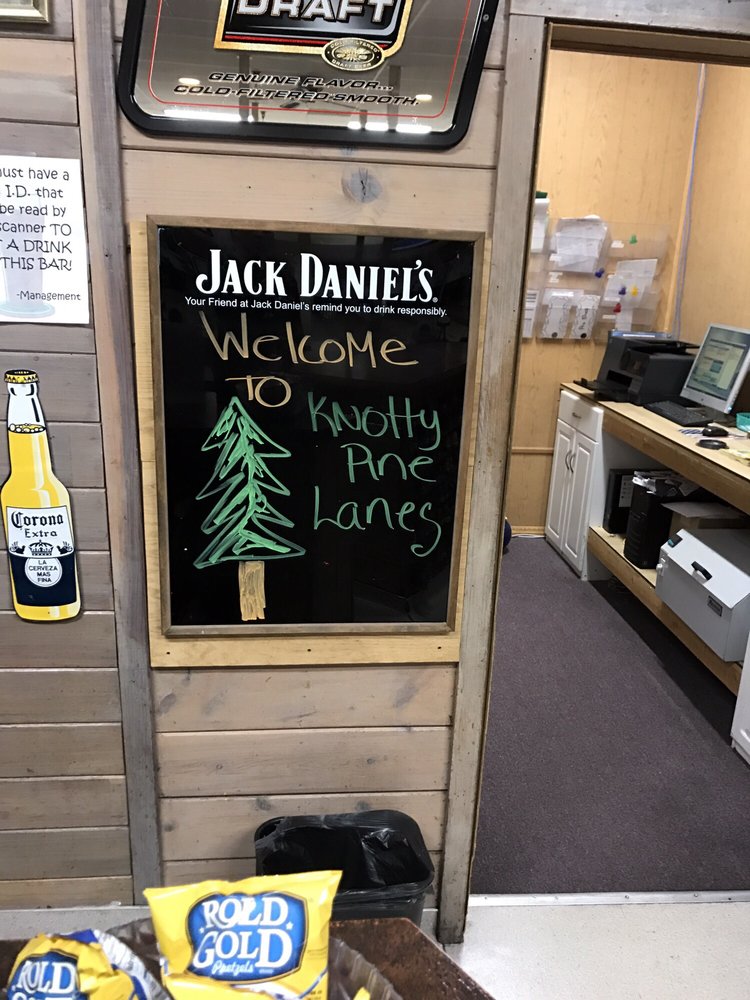 DRAFT
COLD-FILTERED
DRAFT BEER
GENUINE FLAVOR...
COLD-FILTERED·SMOOTH.
must have a
I.D. that
be read by
scanner TO
A DRINK
THIS BAR!
-Management
JACK DANIEL'S®
Your Friend at Jack Daniel's remind you to drink responsibly.
Welcome
TO
Knotty
Pine
Lanes
Corona
Extra
LA
CERVEZA
MAS
FINA
ROLD
GOLD
Pretzels
ROLD
GOLD